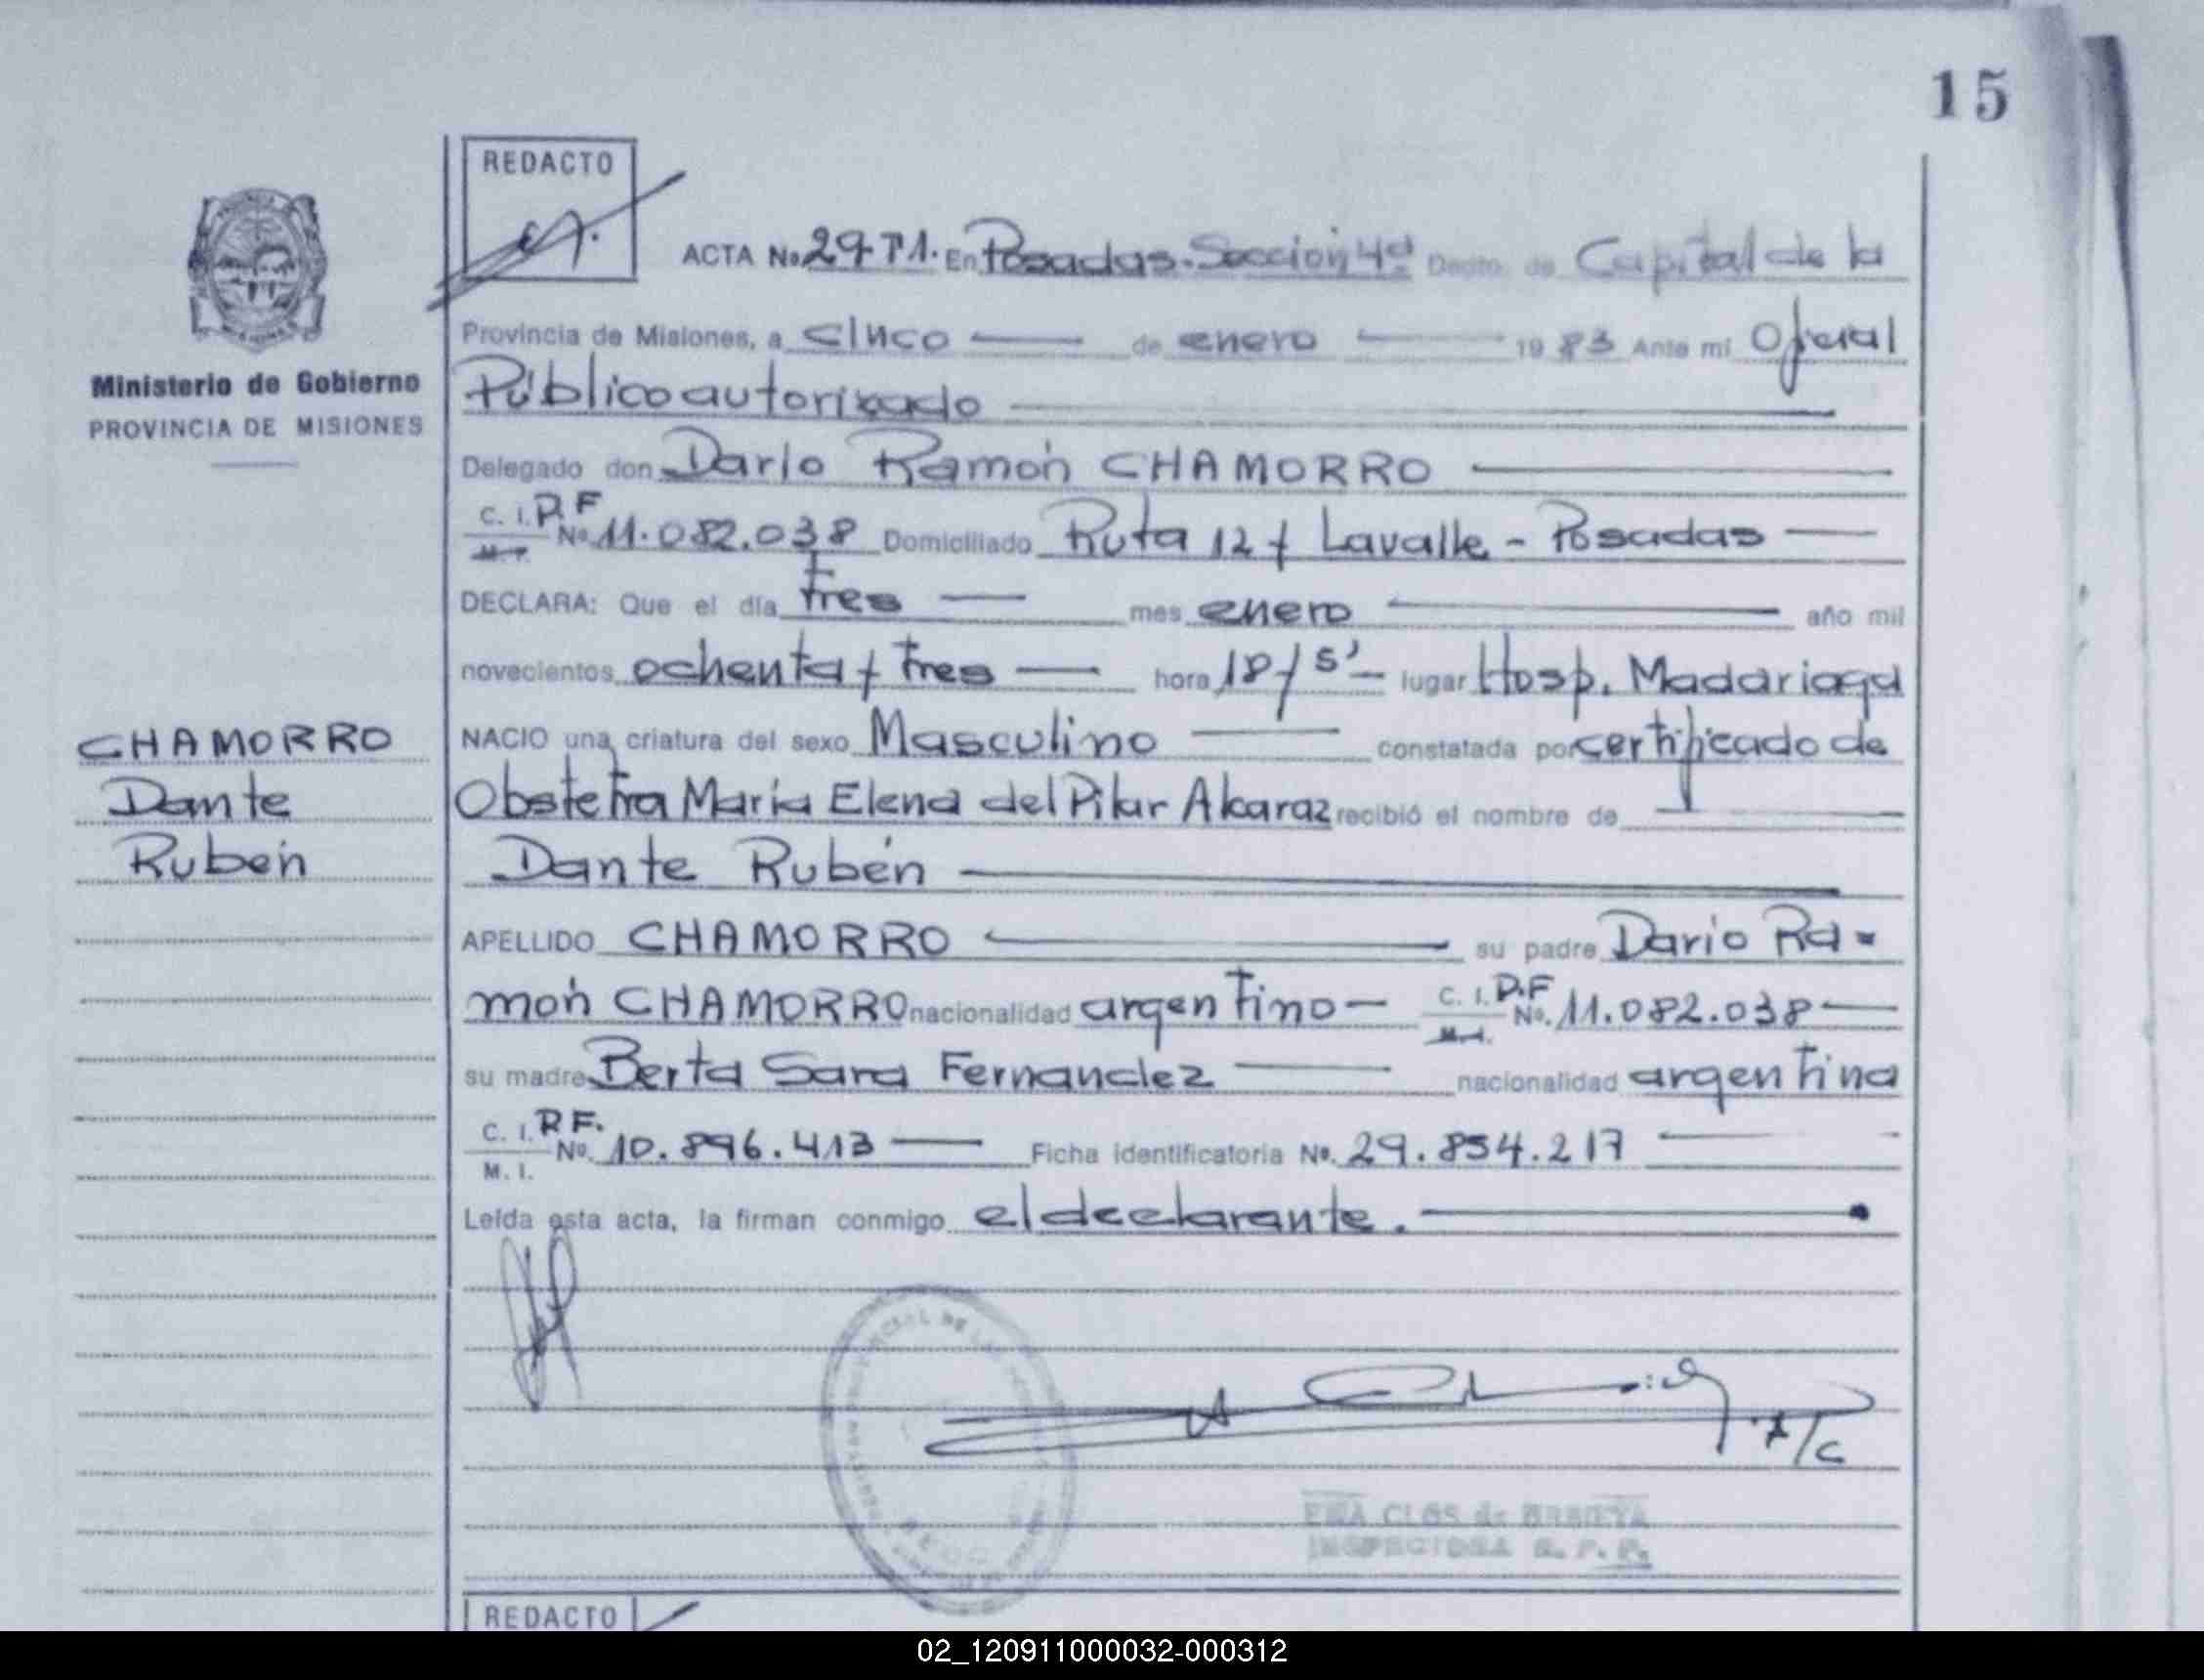 15
REDACTO
ACTA No. 2971. En Posadas. Sección 4ª Depto. de Capital de la
Provincia de Misiones, a cinco de enero 1983 Ante mi Oficial
Público autorizado
Ministerio de Gobierno
PROVINCIA DE MISIONES
Delegado don Darío Ramón CHAMORRO
C. I. D.F
M. I. No. 11.082.038 Domiciliado Ruta 12 y Lavalle - Posadas
DECLARA: Que el día tres mes enero año mil
novecientos ochenta y tres hora 18/5' lugar Hosp. Madariaga
CHAMORRO
Dante
Rubén
NACIO una criatura del sexo Masculino constatada por certificado de
Obstetra María Elena del Pilar Alcaraz recibió el nombre de
Dante Rubén
APELLIDO CHAMORRO su padre Darío Ra-
món CHAMORRO nacionalidad argentino - C. I. D.F No. 11.082.038
su madre Berta Sara Fernandez nacionalidad argentina
C. I. D.F.
M. I. No. 10.896.413 Ficha identificatoria No. 29.854.217
Leída esta acta, la firman conmigo el declarante.
REDACTO
02_120911000032-000312